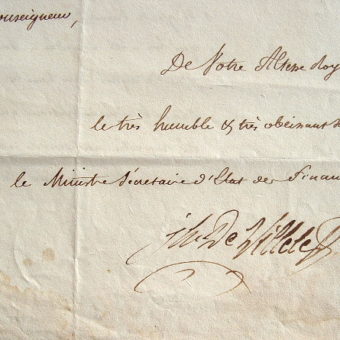 onseigneur,
De Votre Altesse Roy
le très humble & très obéissant s
le Ministre Secretaire d'Etat des Finan
jh De Villele